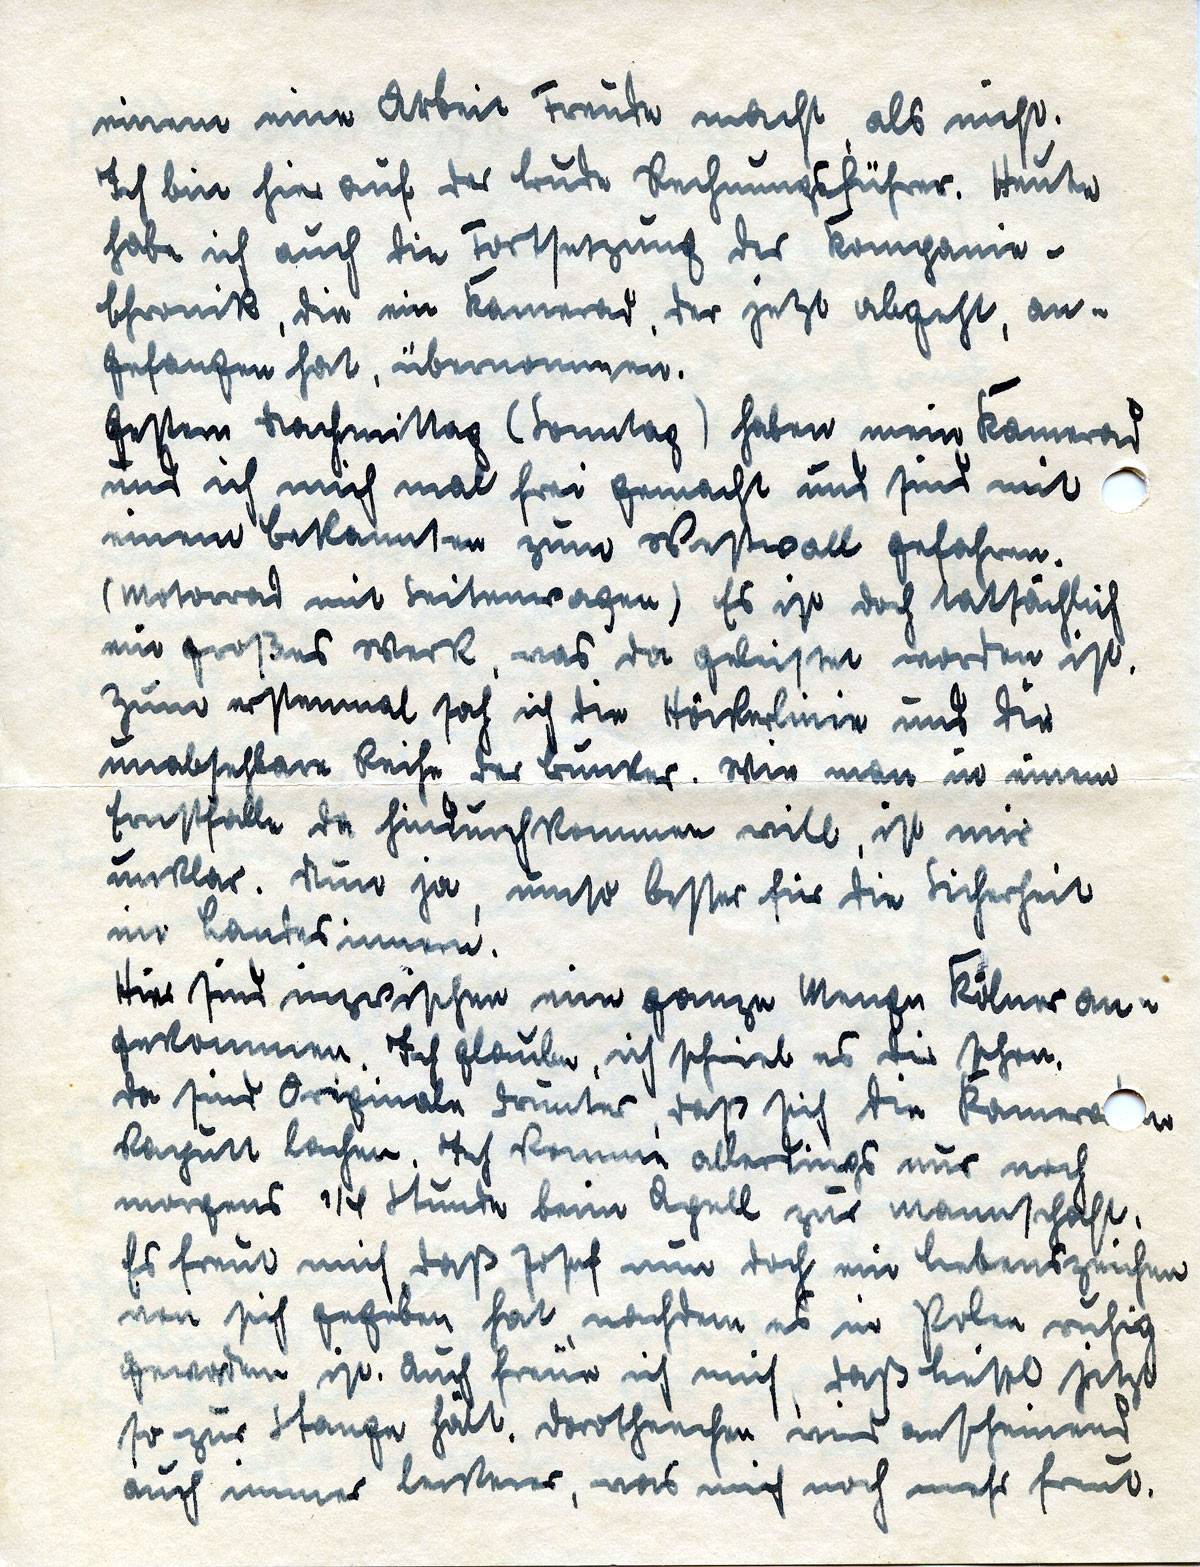 einem eine Arbeit Freude macht, als nicht.
Ich bin hier auf der Bude Rechnungsführer. Heute
habe ich auch die Fortsetzung der Kompanie-
Chronik, die ein Kamerad, der jetzt abgeht, an-
gefangen hat, übernommen.
Gestern Nachmittag (Sonntag) haben mein Kamerad
und ich mich mal frei gemacht und sind mit
einem Bekannten zum Westwall gefahren.
(Motorrad mit Seitenwagen) Es ist doch tatsächlich
ein großes Werk, was da geleistet worden ist.
Zum erstenmal sah ich die Höckerlinie und die
unabsehbare Reihe der Bunker. Wie man in einem
Ernstfalle da hindurchkommen will, ist mir
unklar. Nun ja, umso besser für die Sicherheit
im Landesinnern.
Hier sind inzwischen eine ganze Menge Kölner an-
gekommen. Ich glaube, ich schrieb es Dir schon.
Da sind Originale drunter, daß sich die Kameraden
kaputt lachen. Ich komme allerdings nur noch
morgens 1/4 Stunde beim Apell zur Mannschaft.
Es freut mich, daß Josef nun doch ein Lebenszeichen
von sich gegeben hat, nachdem es in Polen ruhig
geworden ist. Auch freue ich mich, daß Liesel jetzt
so zur Stange hält. Dorotheechen wird anscheinend
auch immer leckerer, was mich noch mehr freut.